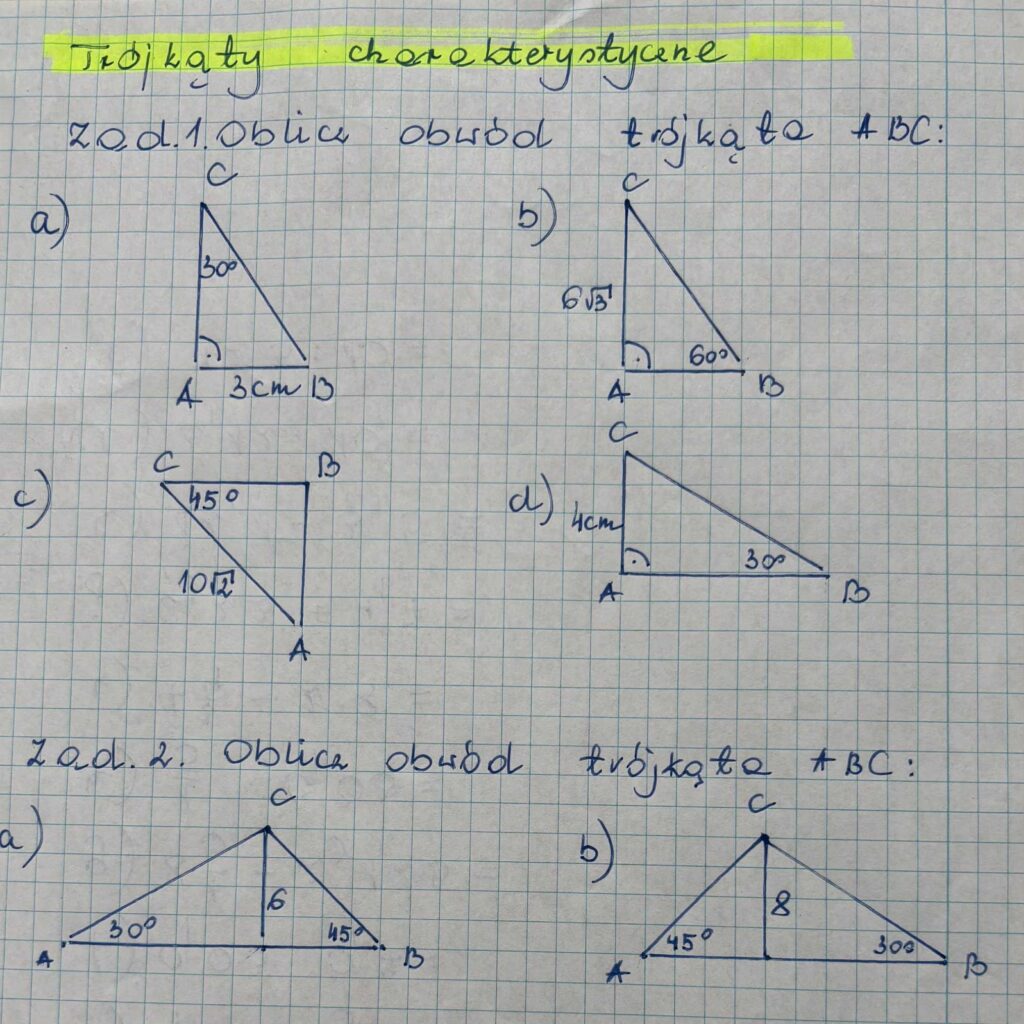 Trójkąty charakterystyczne
Zad.1. Oblicz obwód trójkąta ABC:
a)
C
30°
A 3cm B
b)
C
6√3
60°
A B
c)
C B
45°
10√2
A
d)
C
4cm
30°
A B
Zad.2. Oblicz obwód trójkąta ABC:
a)
C
6
30° 45°
A B
b)
C
8
45° 30°
A B